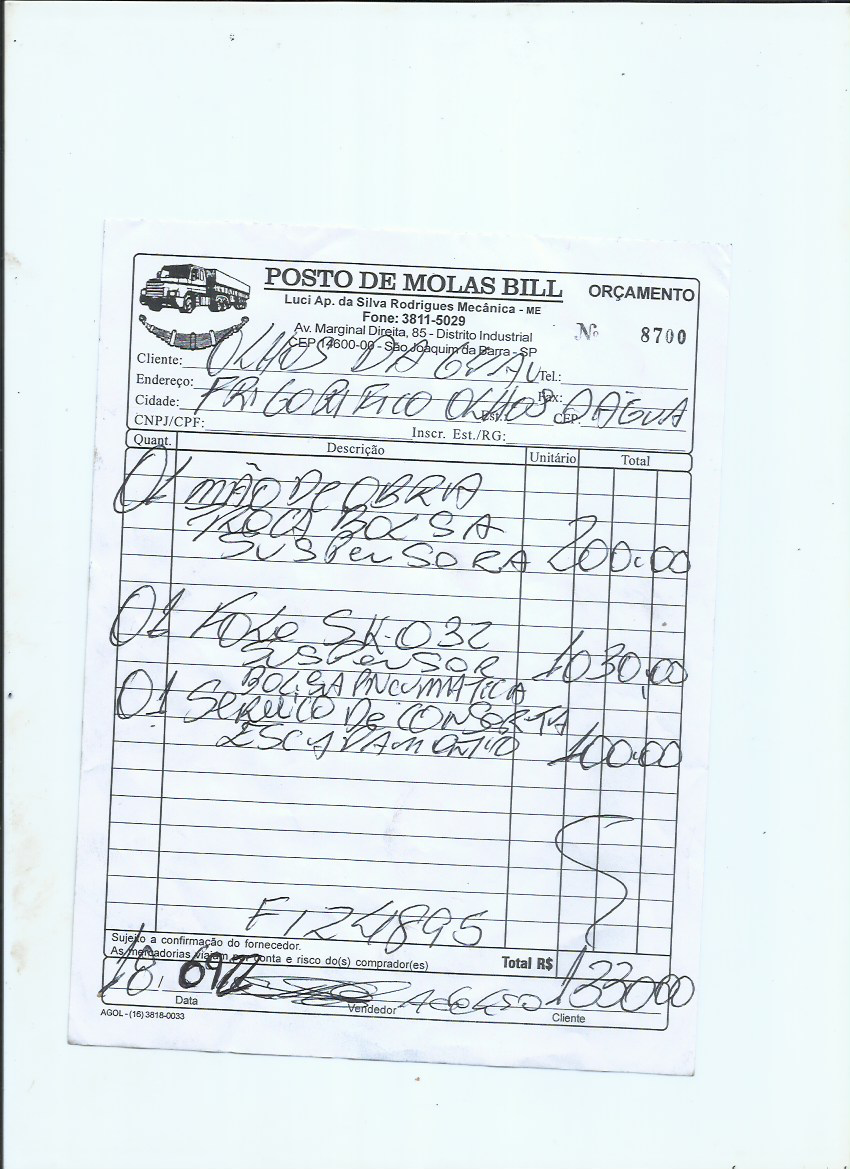 POSTO DE MOLAS BILL
ORÇAMENTO
Luci Ap. da Silva Rodrigues Mecânica - ME
Fone: 3811-5029
Nº 8700
Av. Marginal Direita, 85 - Distrito Industrial
CEP 14600-00 - São Joaquim da Barra - SP
Cliente: OLHOS DAGUA Tel.:
Endereço: Fax:
Cidade: FRIGORIFICO OLHOS DAGUA Est.: CEP:
CNPJ/CPF: Inscr. Est./RG:
Quant. Descrição Unitário Total
01 MÃO De OBRA
TROCA BOLSA
SUSPenSORA 200.00
01 FOLe SK-032
SUSPenSOR 1030,00
BOLSA PNEUMÁTICA
01 SERVIÇO De CONSERTA
ESCAPAMENTO 100.00
F124895
Sujeito a confirmação do fornecedor.
As mercadorias viajam por conta e risco do(s) comprador(es)
Total R$ 133000
18. 09
Data Vendedor Cliente
AGOL - (16) 3818-0033